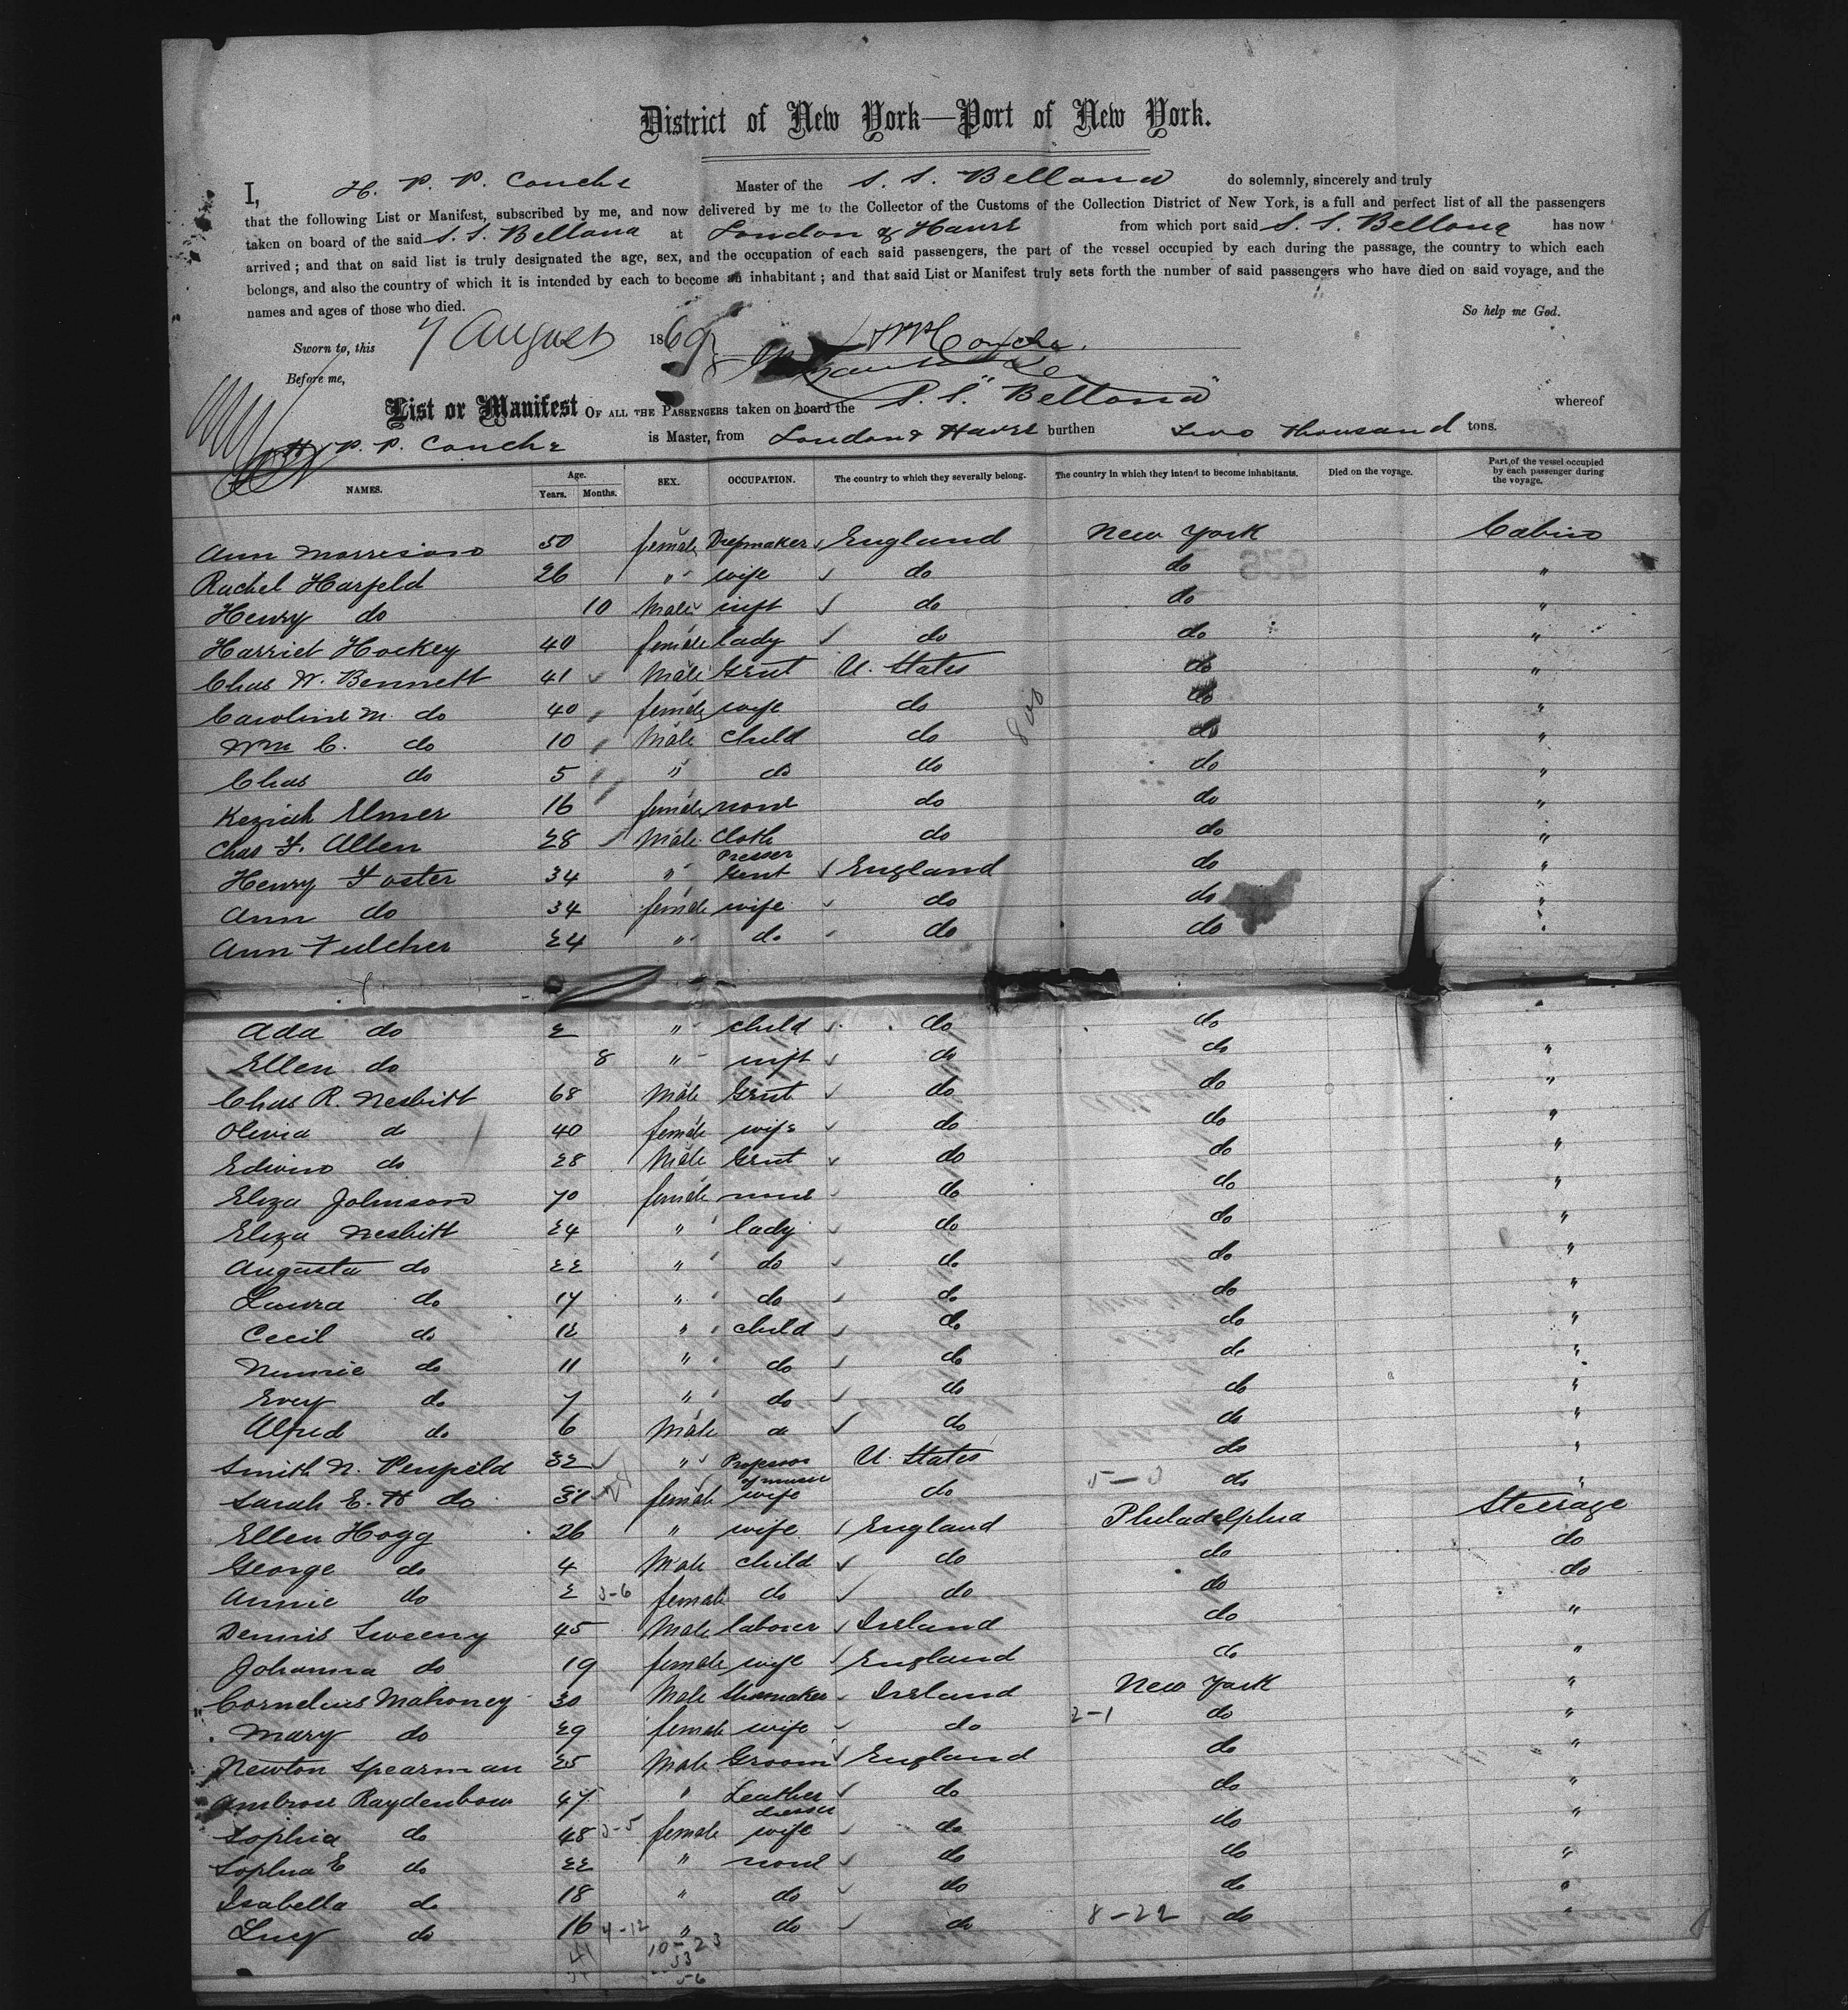 District of New York—Port of New York.
I, H. P. P. Conche Master of the S. S. Bellona do solemnly, sincerely and truly
that the following List or Manifest, subscribed by me, and now delivered by me to the Collector of the Customs of the Collection District of New York, is a full and perfect list of all the passengers
taken on board of the said S. S. Bellona at London & Havre from which port said S. S. Bellona has now
arrived; and that on said list is truly designated the age, sex, and the occupation of each said passengers, the part of the vessel occupied by each during the passage, the country to which each
belongs, and also the country of which it is intended by each to become an inhabitant; and that said List or Manifest truly sets forth the number of said passengers who have died on said voyage, and the
names and ages of those who died. So help me God.
Sworn to, this 7 August 1869
Before me,
List or Manifest OF ALL THE PASSENGERS taken on board the S. S. "Bellona" whereof
H. P. P. Conche is Master, from London & Havre burthen Two Thousand tons.
NAMES. Age. Years. Months. SEX. OCCUPATION. The country to which they severally belong. The country in which they intend to become inhabitants. Died on the voyage. Part of the vessel occupied by each passenger during the voyage.
Ann Morrison 50 female Drepmaker England New York Cabin
Rachel Harfeld 26 " wife do do "
Henry do 10 Male inft do do "
Harriet Hockey 40 female lady do do "
Chas W. Bennett 41 Male Gent U. States do "
Caroline M. do 40 female wife do do "
Wm C. do 10 Male child do do "
Chas do 5 " do do do "
Keziah Elmer 16 female none do do "
Chas F. Allen 28 Male Cloth Presser do do "
Henry Foster 34 " Gent England do "
Ann do 34 female wife do do "
Ann Fulcher 24 " do do do "
Ada do 2 " child do do
Ellen do 8 " inft do do "
Chas R. Nesbitt 68 Male Gent do do "
Olivia do 40 female wife do do "
Edwin do 28 Male Gent do do "
Eliza Johnson 70 female none do do "
Eliza Nesbitt 24 " lady do do "
Augusta do 22 " do do do "
Laura do 17 " do do do "
Cecil do 12 " child do do "
do 11 " do do do "
Evey do 7 " do do do "
Alfred do 6 Male do do do "
Smith N. Penfield 32 " Professor of music U. States do "
Sarah E. H do 31 female wife do do "
Ellen Hogg 26 " wife England Philadelphia Steerage
George do 4 Male child do do do
Annie do 2 3-6 female do do do do
Dennis Sweeny 45 Male laborer Ireland do "
Johanna do 19 female wife England do "
Cornelius Mahoney 30 Male Shoemaker Ireland New York "
Mary do 29 female wife do 2-1 do "
Newton Spearman 25 Male Groom England do "
Ambrose Raydenbow 47 " Leather dresser do do "
Sophia do 48 3-5 female wife do do "
Sophia E do 22 " none do do "
Isabella do 18 " do do do "
Lucy do 16 4-12 " do do 8-22 do "
41 10-23
53
56